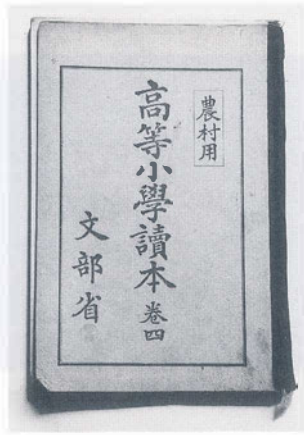 農村用
高等小學讀本 卷四
文部省